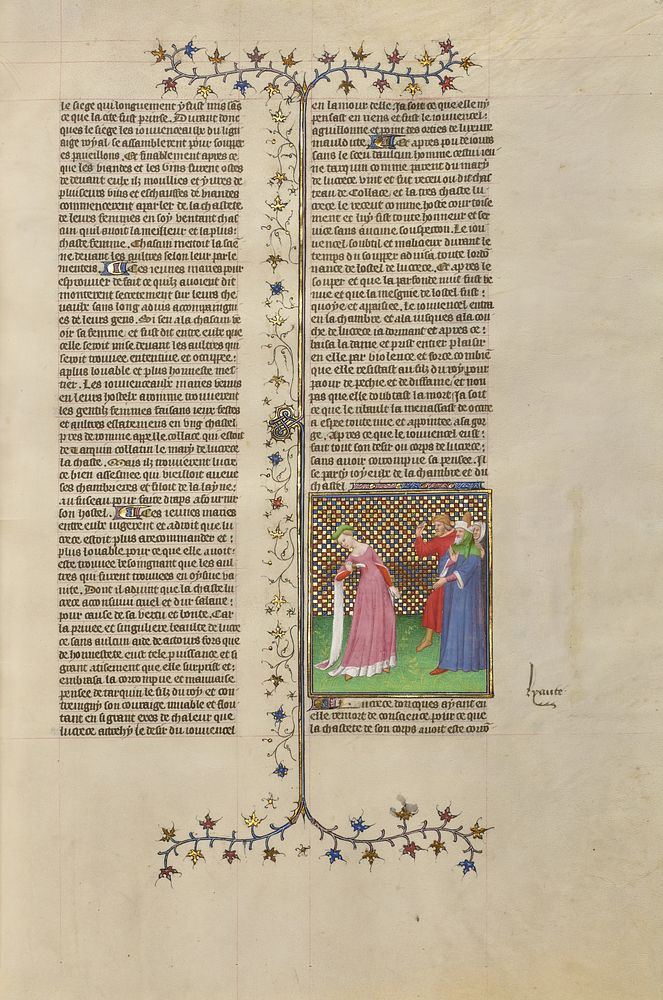 le siege qui longuement y fust mis sãs
ce que la cite fust prinse. Durant donc
ques le siege les iouuenceaulx du lign
aige royal se assemblerent pour soupper
es paueillons. Et finablement apres ce
que les viandes et les vins furent ostes
de deuant eulx ilz moullies et yures de
pluiseurs vins et eschauffes de viandes
commencerent a parler de la chastete
de leurs femmes en soy ventant chas
cun quil auoit la meilleur et la plus
chaste femme. Chascun mettoit la siẽ
ne deuant les aultres selon leur parle
mentens. Ces ieunes maries pour
esprouuer de fait ce quilz auoient dit
monterent secretement sur leurs che
uaulx sans long aduis accompaignies
es de leurs gens. Si sen ala chascun ve
oir sa femme et fust dit entre eulx que
celle seroit mise deuant les aultres qui
seroit trouuee ententiue et occupee
a plus louable et plus honneste mes
tier. Les iouuenceaulx maries venus
en leurs hostelz a romme trouuerent
les gentilz femmes faisans ieux festes
et aultres esbatemens en vng chastel
pres de romme appelle collace qui estoit
de Tarquin collatin le mary de lucrece
la chaste. Mais ilz trouuerent lucre
ce bien assesinee qui veilloit auec
ses chamberieres et filoit de la layne
au fuseau pour faire draps a fournir
son hostel. Ces ieunes maries
entre eulx iugerent et a droit que lu
crece estoit plus a recommander et
plus louable pour ce que elle auoit
este trouuee besoingnant que les aul
tres qui furent trouuees en oyseuse va
nite. Donc il aduint que la chaste lu
crece aconsuiui cruel et dur salaire
pour cause de sa vertu et bonte. Car
la priuee et singuliere beaulte de lucre
ce sans aulcun aide de atours fors que
de honnestete eust tele puissance et si
grant atisement que elle surprist et
embrasa la corrompue et mauuaise
pensee de tarquin le filz du roy et con
traingny son courage muable et flou
tant en si grant exces de chaleur que
lucrece actrehy le desir du iouuencel
en lamour delle. Ja soit ce que elle ny
pensast en riens et fust le iouuencel
aguillonne et point des orties de luxure
mauldicte. Et apres pou de iours
sans le sceu daulcun homme cestui ieu
ne tarquin comme parent du mary
de lucrece vint et fut receu ou dit chas
teau de Collace, et la tres chaste lu
crece le receut comme hoste courtoise
ment et luy fist toute honneur et ser
uice sans aucune souspecon. Le iou
uencel soubtil et malicieux durant le
temps du soupper aduisa toute lordõ
nance de lostel de lucrece. Et apres le
soupper et que la parfonde nuit fust ve
nue et que la mesgnie de lostel fust
quoye et apaisiee. Le iouuencel entra
en la chambre et ala iusques a la cou
che de lucrece ia dormant et apres ce
baisa la dame et prist entier plaisir
en elle par violence et force combiẽ
que elle resistast au filz du roy pour
paour de pechie et de diffame, et non
pas que elle doubtast la mort Ja soit
ce que le ribault la menassast de occire
a espee toute nue et appointee a sa gor
ge. Apres ce que le iouuencel eust
fait tout son desir ou corps de lucrece
sans auoir corrompue sa pensee. Il
se party ioyeulx de la chambre et du
chastel
Lucrece doncques ayant en
elle remort de conscience pour ce que
la chastete de son corps auoit este corrõ